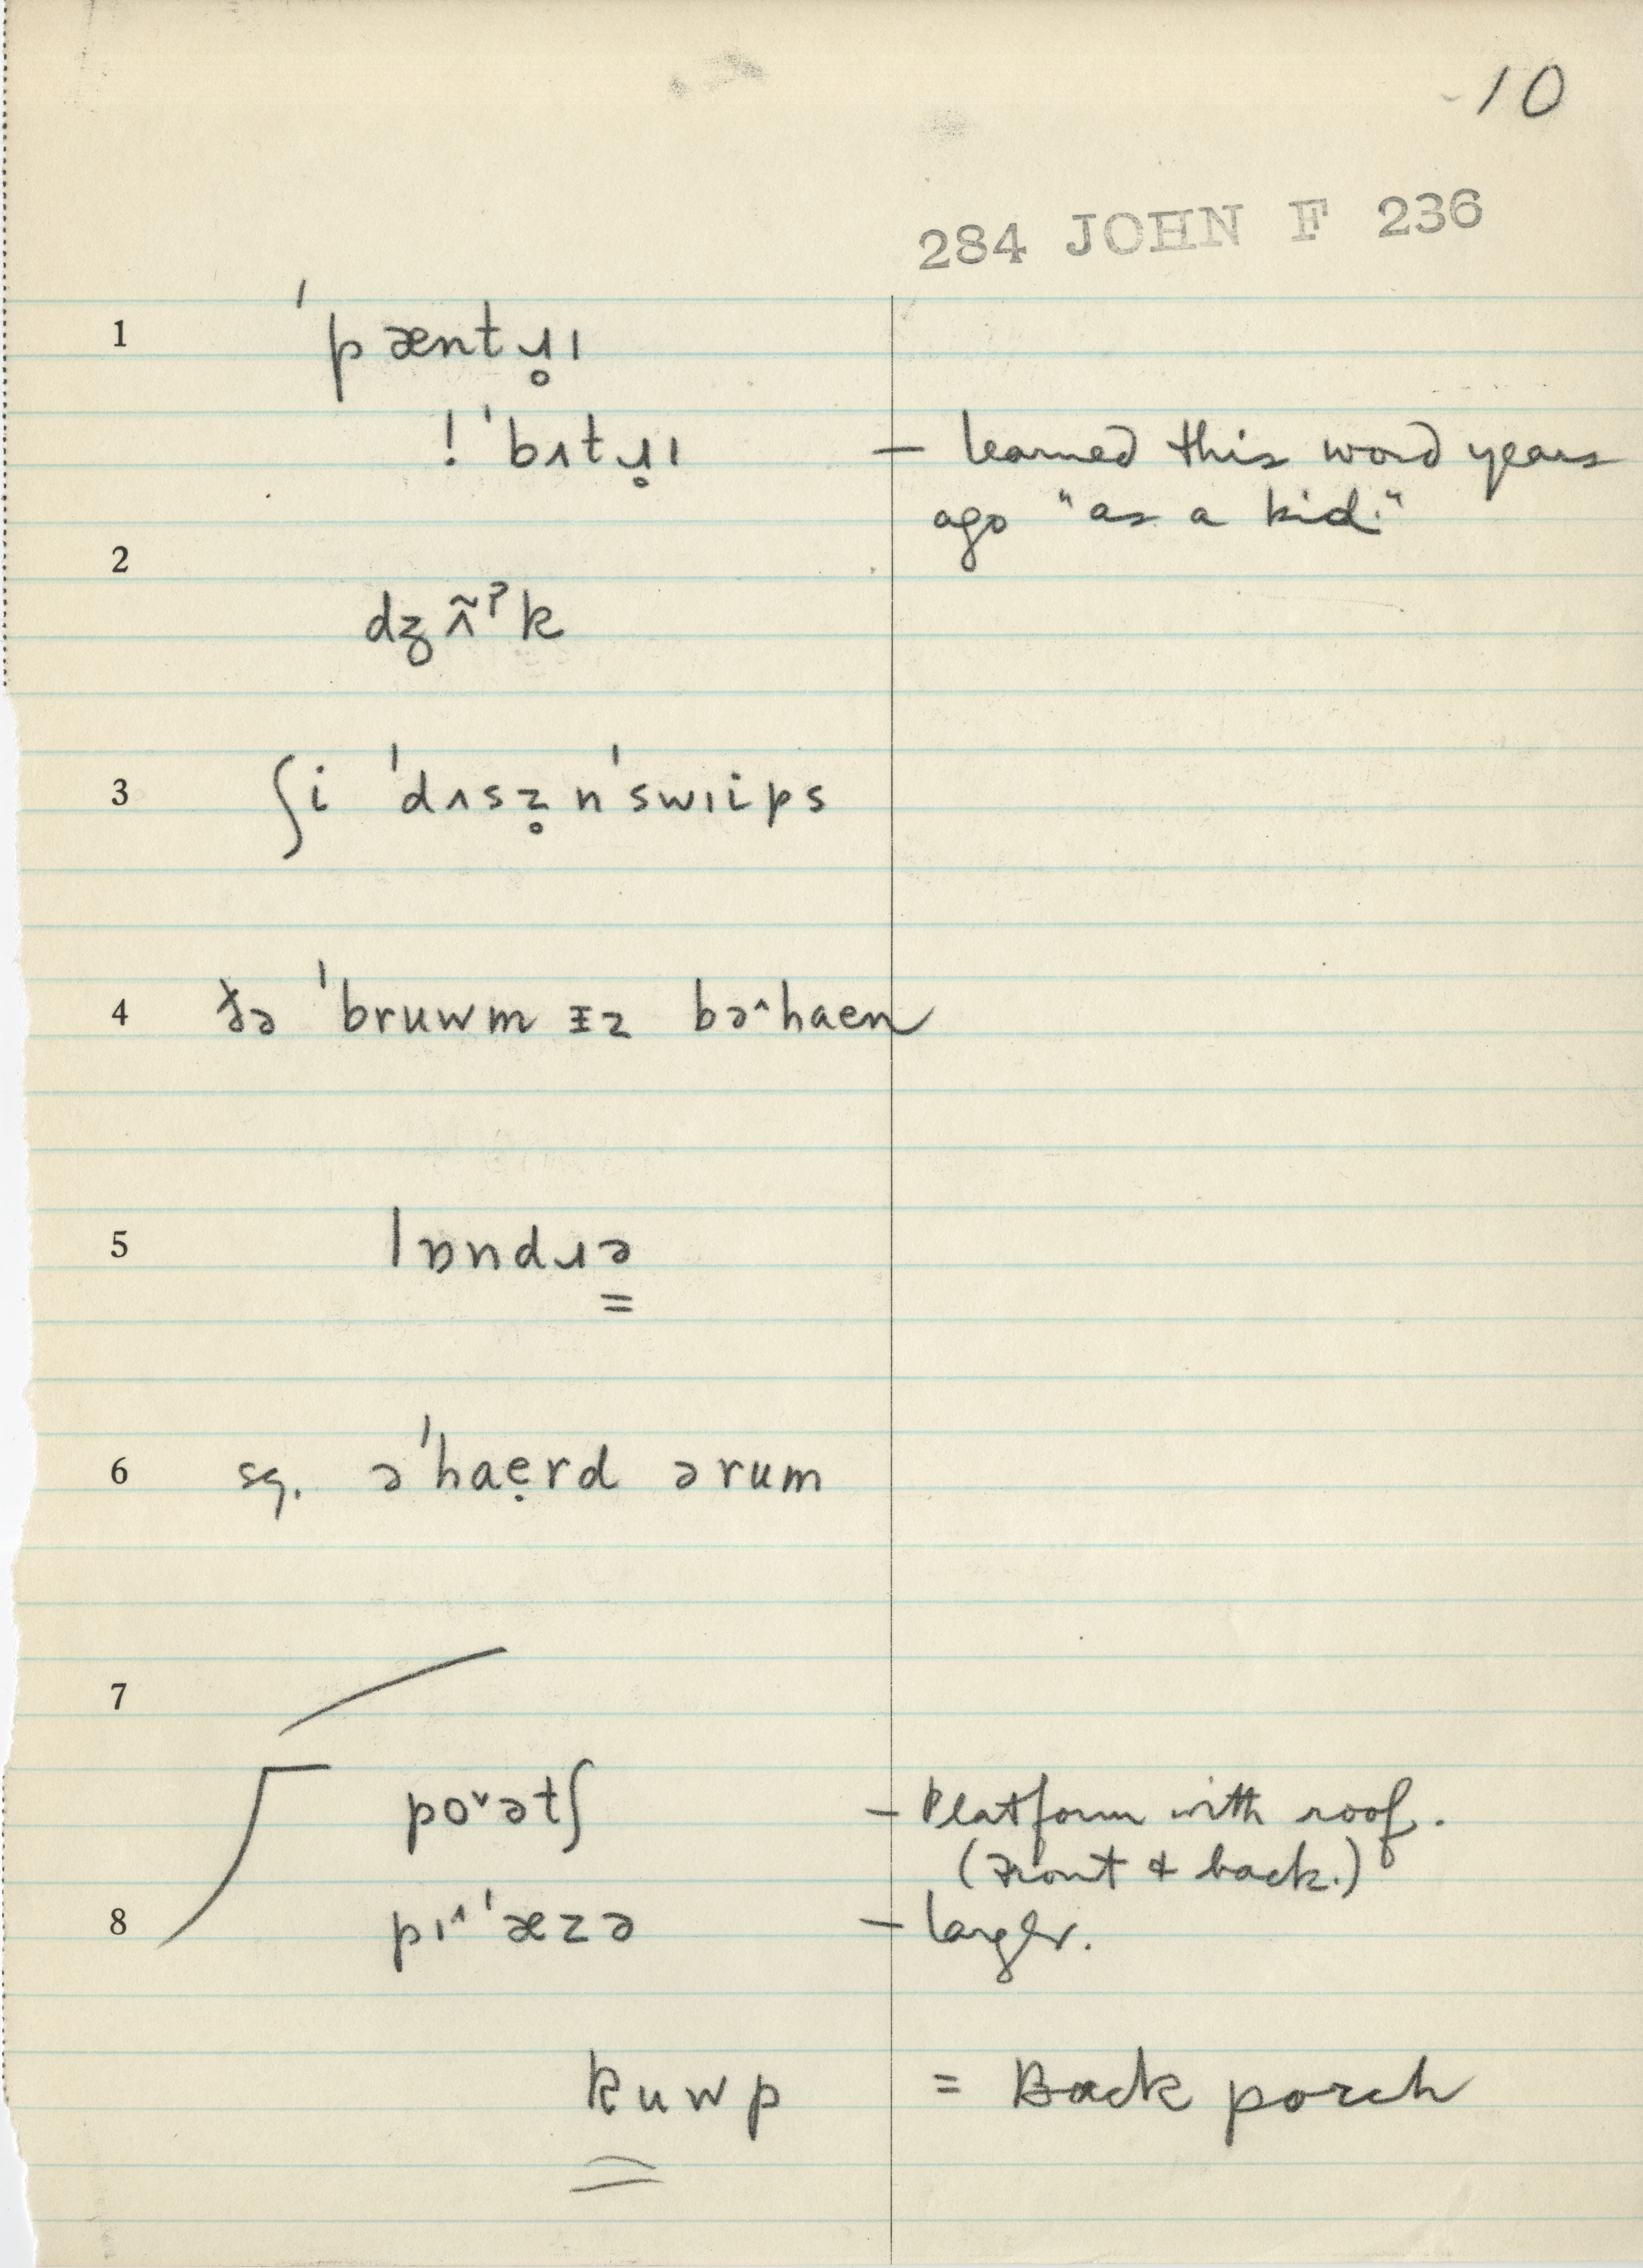 10
284 JOHN F 236
1 ˈpæntɹ̥ɪ
! ˈbʌtɹ̥ɪ – learned this word years
ago "as a kid."
2
dʒʌ̃ˀk
3 ʃi ˈdʌsz̥ nˈswɪips
4 ðə ˈbruwm ɪz bə^haen
5 lɒndɹə
6 sq. əˈhaẹrd ərum
7
poˇətʃ – Platform with roof.
(Front & back.)
8 pɪ^ˈæzə – larger.
kuwp = Back porch